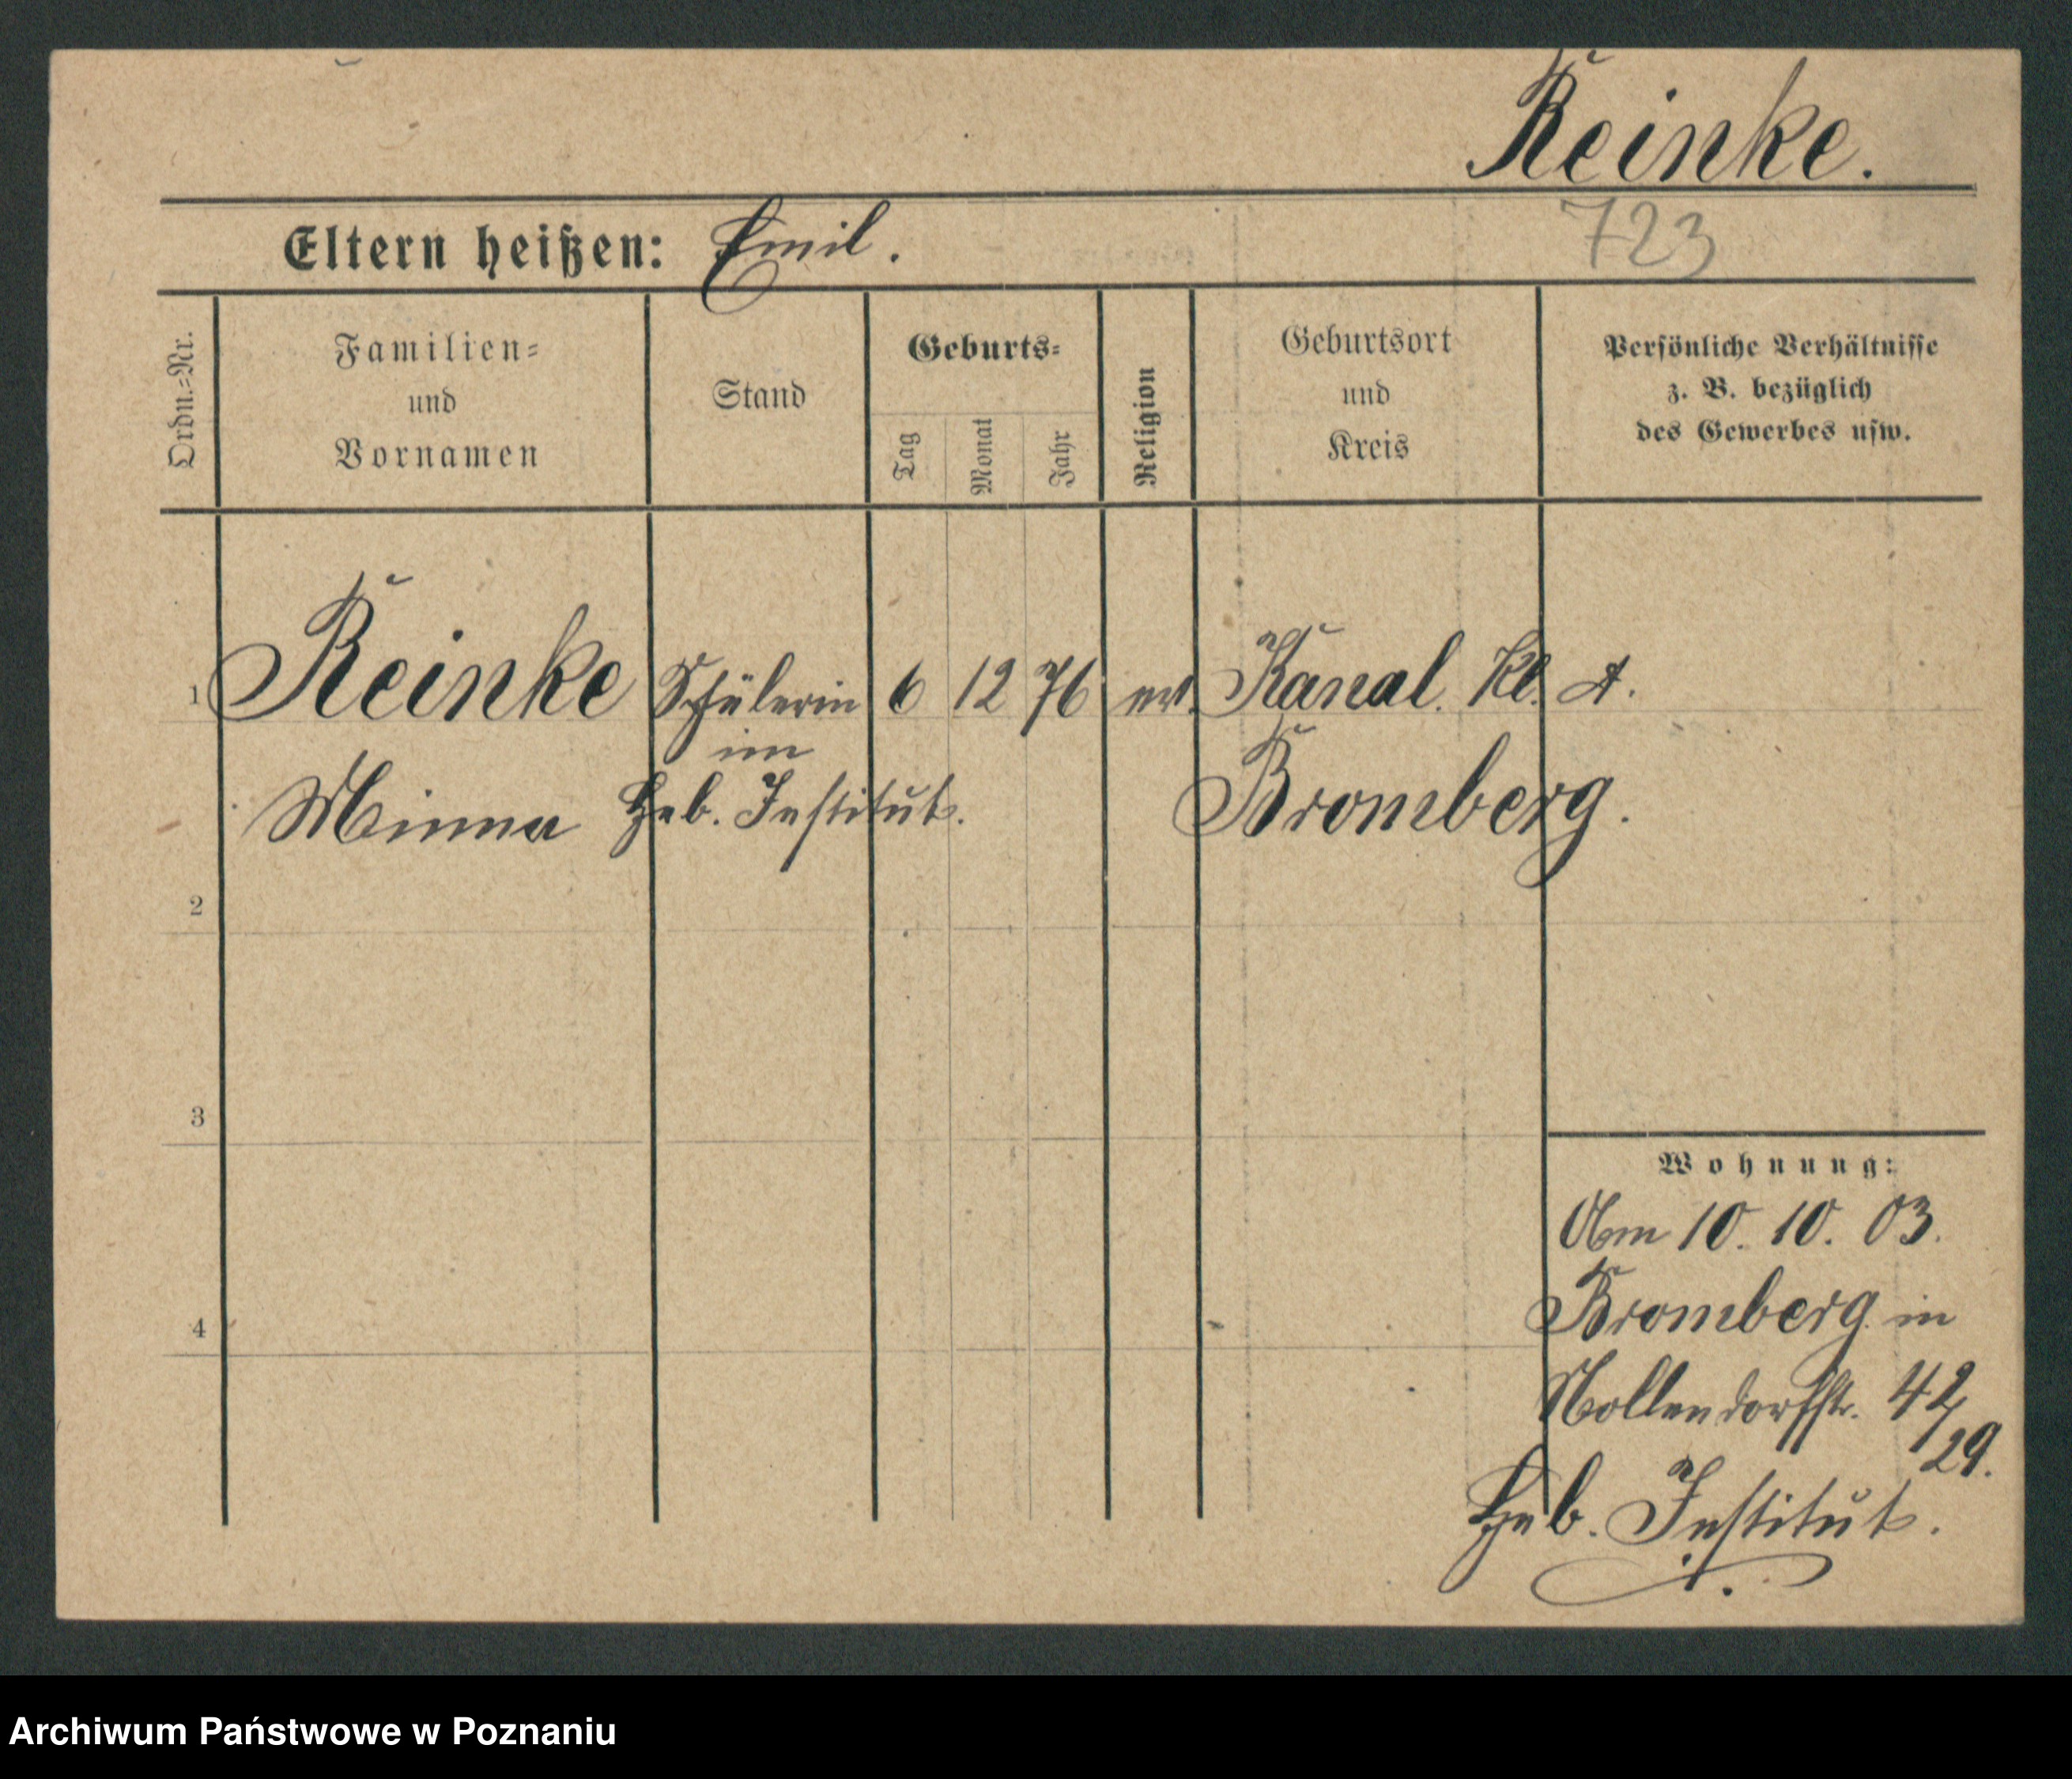 Reinke.
Eltern heißen: Emil.
723
Ordn.-Nr.
Familien-
und
Vornamen
Stand
Geburts-
Tag
Monat
Jahr
Religion
Geburtsort
und
Kreis
Persönliche Verhältnisse
z. B. bezüglich
des Gewerbes usw.
1 Reinke Schülerin 6 12 76 Kanal. Kl. A.
im
Minna Heb. Institut. Bromberg.
2
3
4
Wohnung:
Am 10. 10. 03.
Bromberg in
Nollendorfstr. 42/29.
Heb. Institut.
Archiwum Państwowe w Poznaniu